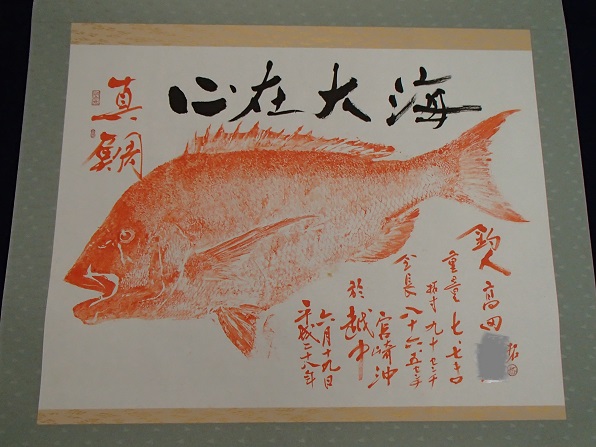 心在大海
真鯛
釣人 高田
重量 七.七キロ
拓寸 九十センチ
全長 八十六.五センチ
宮崎沖
於越中
六月十九日
平成二十八年